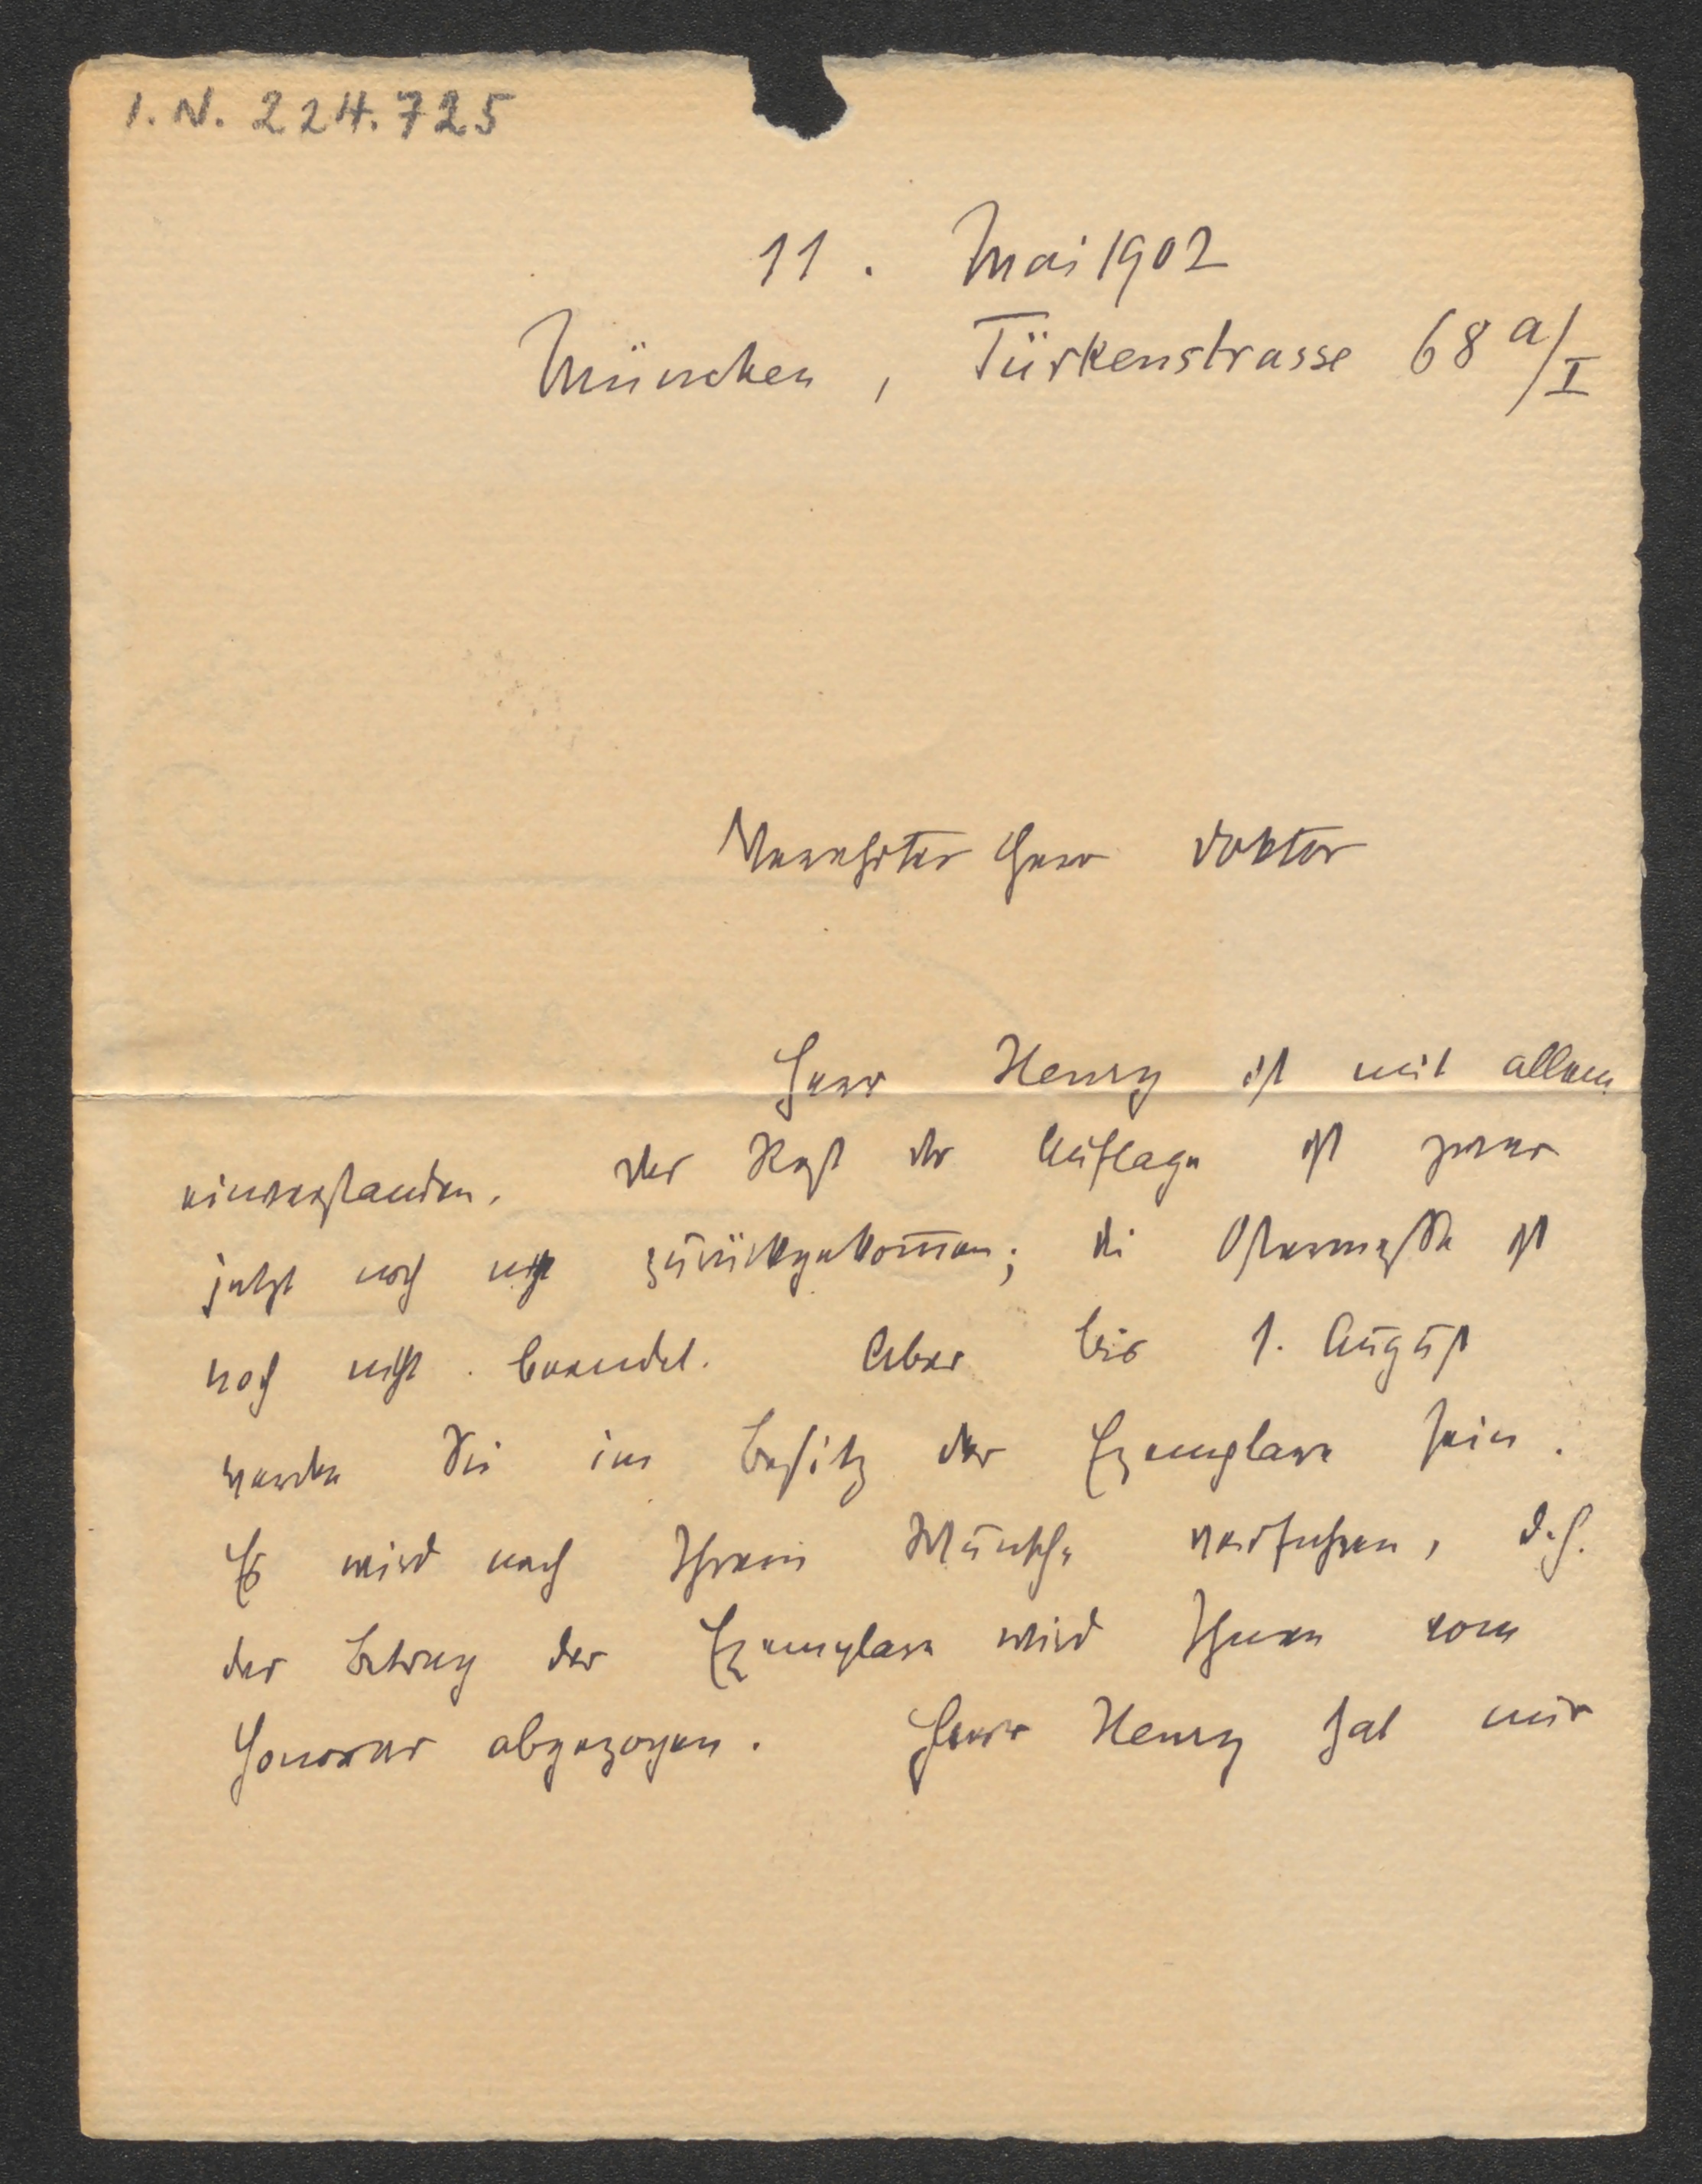 I. N. 224.725
11. Mai 1902
München, Türkenstrasse 68 a/I
Verehrter Herr Doktor
Herr Henry ist mit allem
einverstanden. Der Rest der Auflage ist zwar
jetzt noch nicht zurückgekom̅en; die Ostermesse ist
noch nicht beendet. Aber bis 1. August
werden Sie im Besitz der Exemplare sein.
Es wird nach Ihrem Wunsche verfahren, d. h.
der Betrag der Exemplare wird Ihnen vom
Honorar abgezogen. Herr Henry hat mir